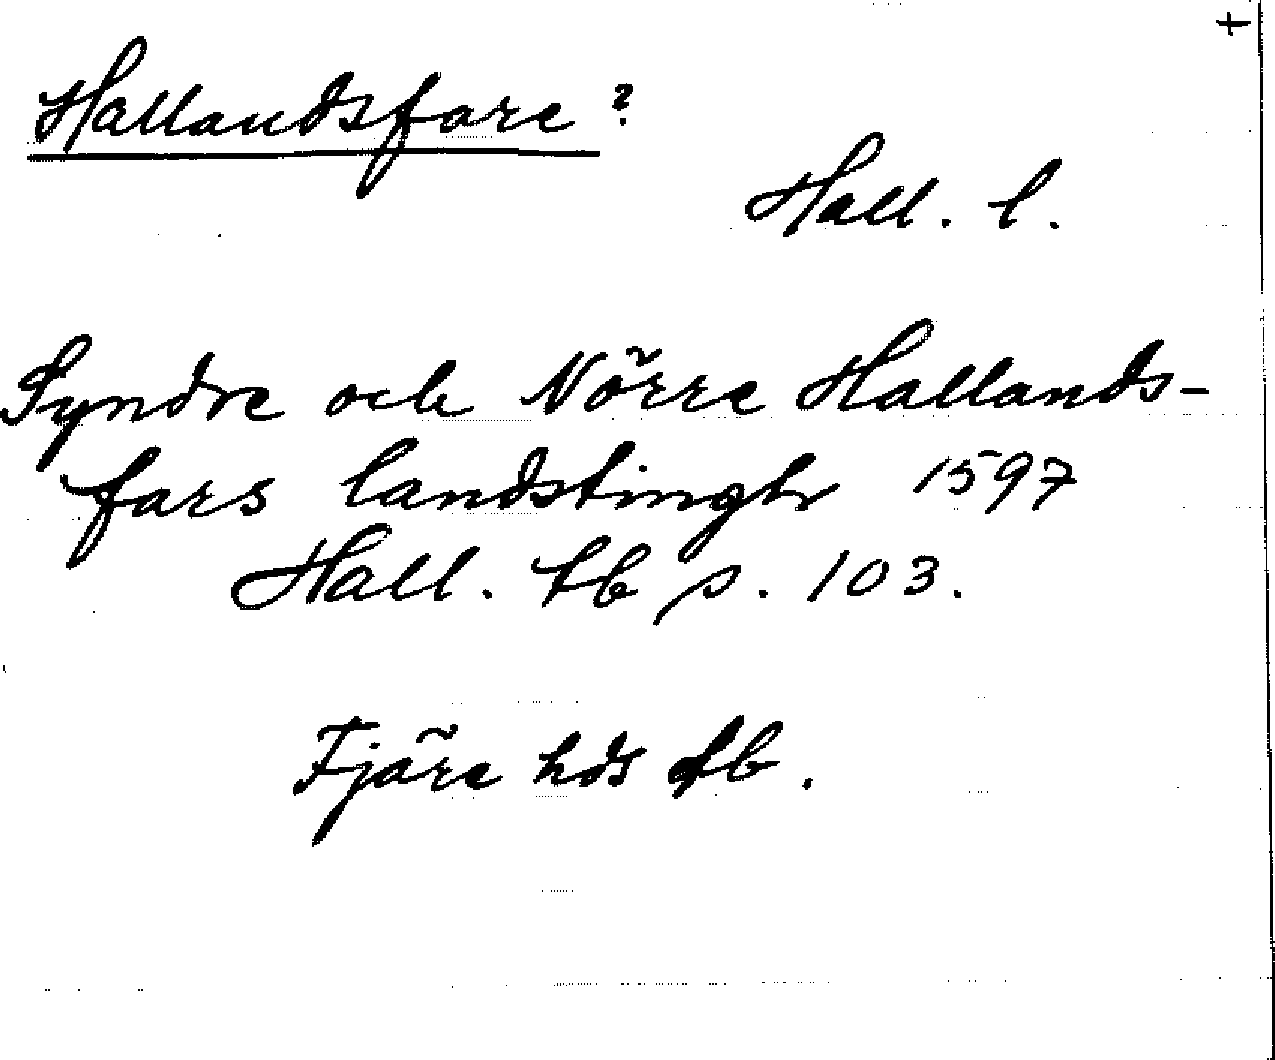 +
Hallandsfare?
Hall. l.
Syndre och Nörre Hallands-
fars landstingh 1597
Hall. tb s. 103.
Fjäre hds tb.